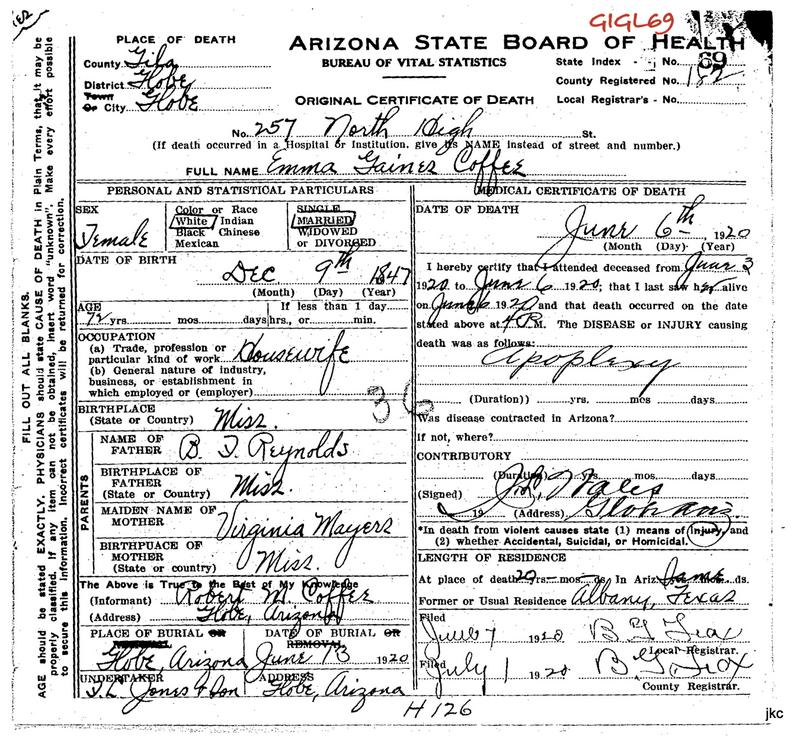 GIGL69
PLACE OF DEATH
County Gila
District Globe
Town
Or City Globe
ARIZONA STATE BOARD OF HEALTH
BUREAU OF VITAL STATISTICS
ORIGINAL CERTIFICATE OF DEATH
State Index - No. 69
County Registered No. 182
Local Registrar's - No.
No. 257 North High St.
(If death occurred in a Hospital or Institution, give its NAME instead of street and number.)
FULL NAME Emma Gaines Coffee
FILL OUT ALL BLANKS.
AGE should be stated EXACTLY. PHYSICIANS should state CAUSE OF DEATH in Plain Terms, that it may be
properly classified. If any item can not be obtained, insert word "unknown". Make every effort possible
to secure this information. Incorrect certificates will be returned for correction.
PERSONAL AND STATISTICAL PARTICULARS
SEX
Female
Color or Race
White Indian
Black Chinese
Mexican
SINGLE
MARRIED
WIDOWED
or DIVORCED
DATE OF BIRTH
Dec 9th 1847
(Month) (Day) (Year)
AGE
72 yrs. mos. days
If less than 1 day
hrs., or min.
OCCUPATION
(a) Trade, profession or
particular kind of work Housewife
(b) General nature of industry,
business, or establishment in
which employed or (employer)
36
BIRTHPLACE
(State or Country) Miss.
PARENTS
NAME OF
FATHER B. T. Reynolds
BIRTHPLACE OF
FATHER
(State or Country) Miss.
MAIDEN NAME OF
MOTHER Virginia Mayers
BIRTHPUACE OF
MOTHER
(State or country) Miss.
The Above is True to the Best of My Knowledge
(Informant) Robert M. Coffee
(Address) Globe, Arizona
PLACE OF BURIAL OR
REMOVAL
Globe, Arizona
DATE OF BURIAL OR
REMOVAL
June 13 1920
UNDERTAKER
F. L. Jones & Son
ADDRESS
Globe, Arizona
MEDICAL CERTIFICATE OF DEATH
DATE OF DEATH
June 6th 1920
(Month) (Day) (Year)
I hereby certify that I attended deceased from June 3
1920 to June 6 1920; that I last saw her alive
on June 6 1920 and that death occurred on the date
stated above at 4 P.M. The DISEASE or INJURY causing
death was as follows:
Apoplexy
(Duration) yrs. mos days
Was disease contracted in Arizona?
If not, where?
CONTRIBUTORY
(Duration) yrs. mos. days
(Signed) Wales
19 (Address)
*In death from violent causes state (1) means of Injury, and
(2) whether Accidental, Suicidal, or Homicidal.
LENGTH OF RESIDENCE
At place of death 29 yrs. mos. ds. In Ariz. Same ds.
Former or Usual Residence Albany, Texas
Filed
June 7 1920 B G Fox
Local Registrar.
Filed
July 1 1920 B G Fox
County Registrar.
H 126
jkc